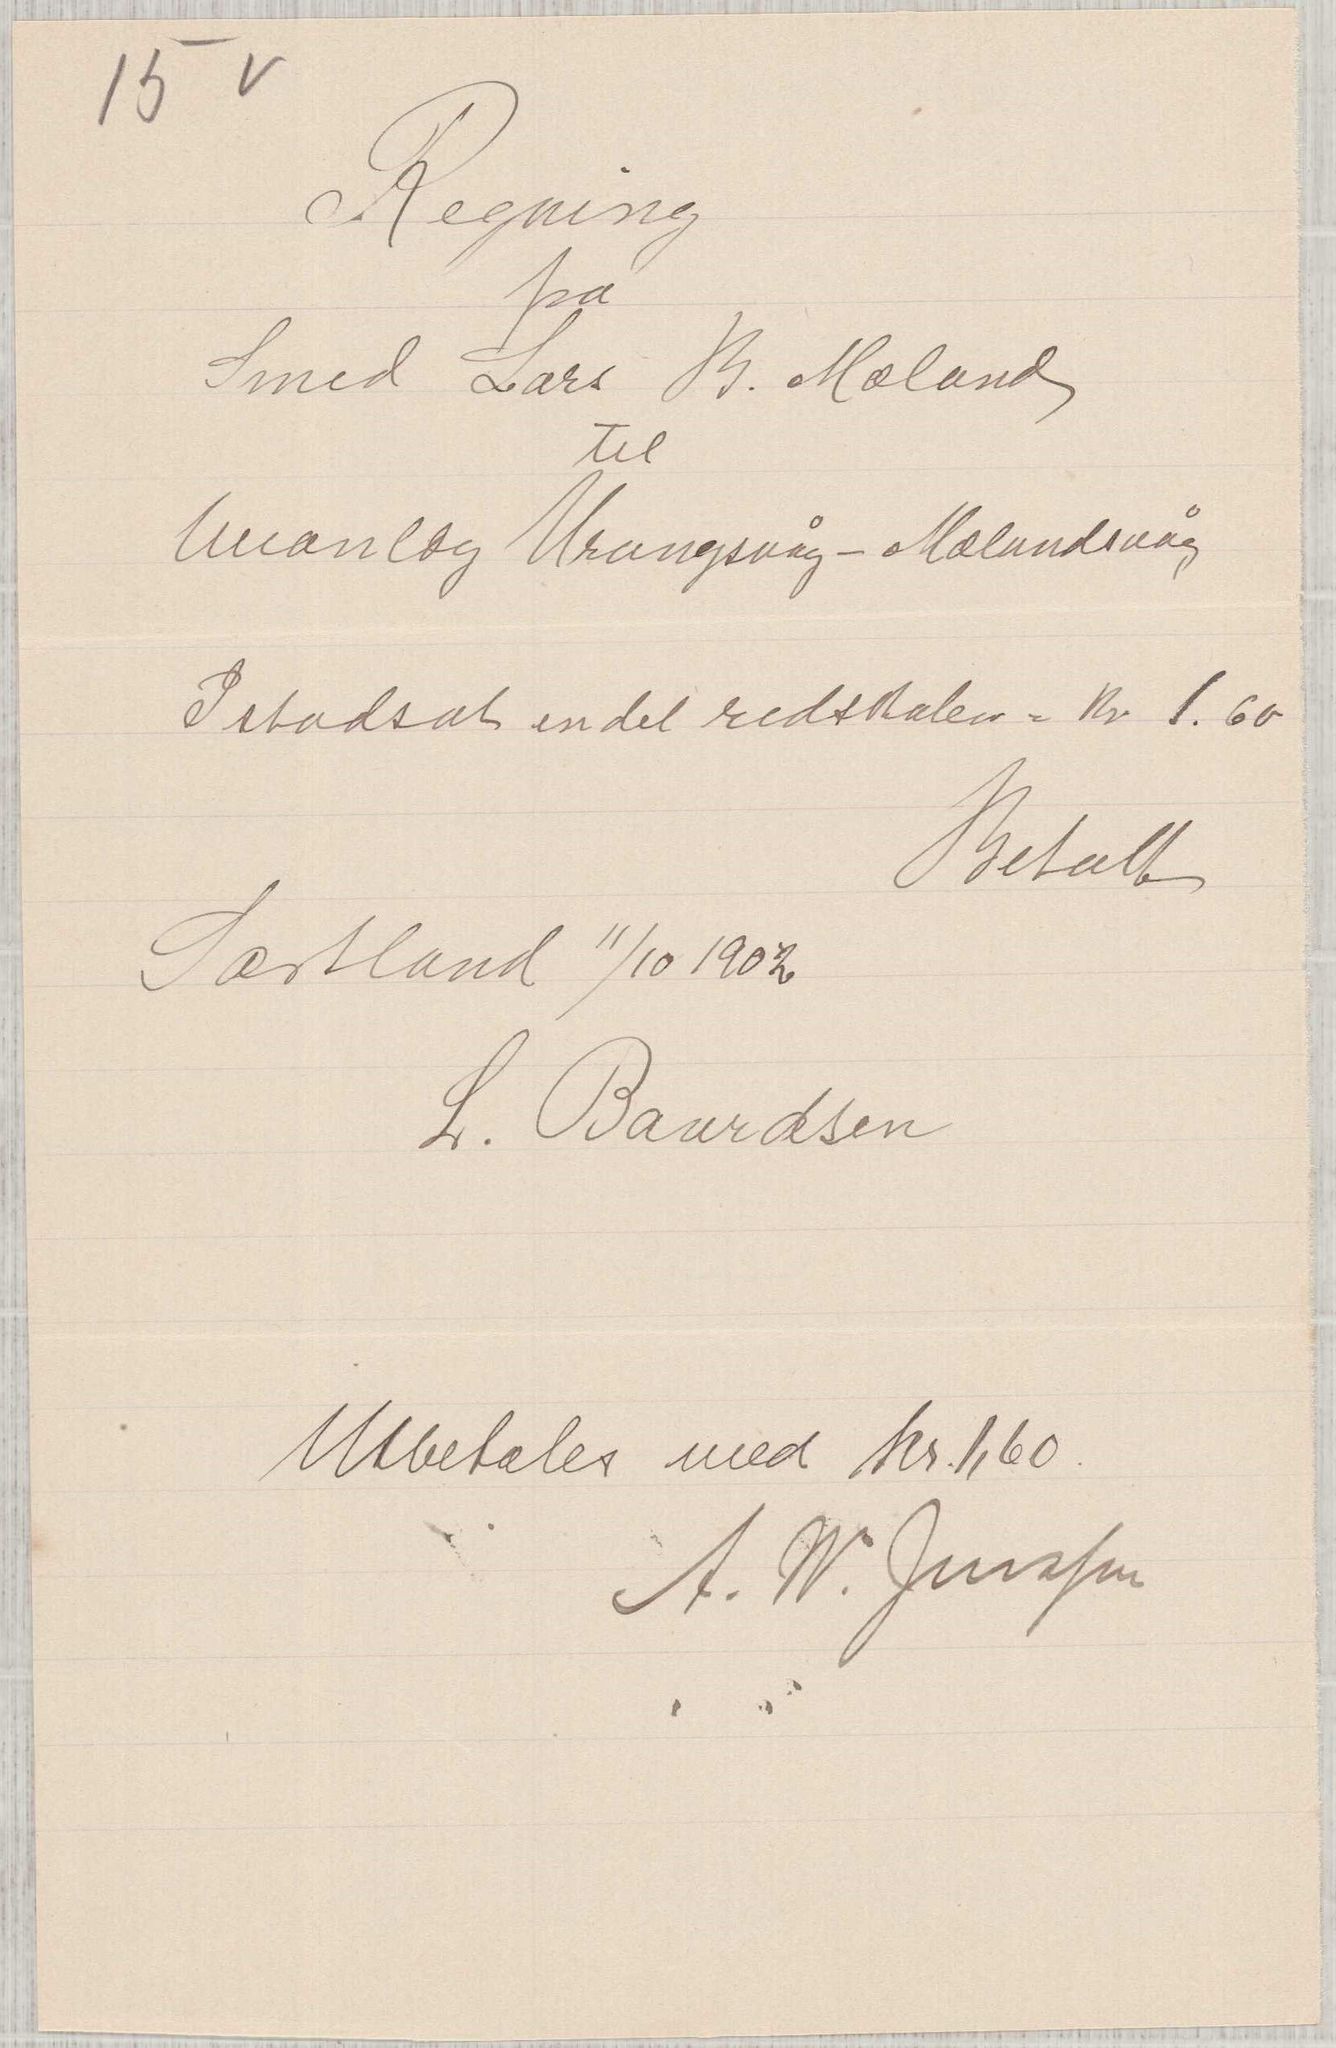 15 v
Regning
fra
Smed Lars B. Mæland
til
Urangsvåg - Mælandsvåg
Istadsat endel redskaber = Kr 1.60
Betalt
Sørtland 11/10 1902
L. Baardsen
Utbetales med kr. 1,60.
A. W.